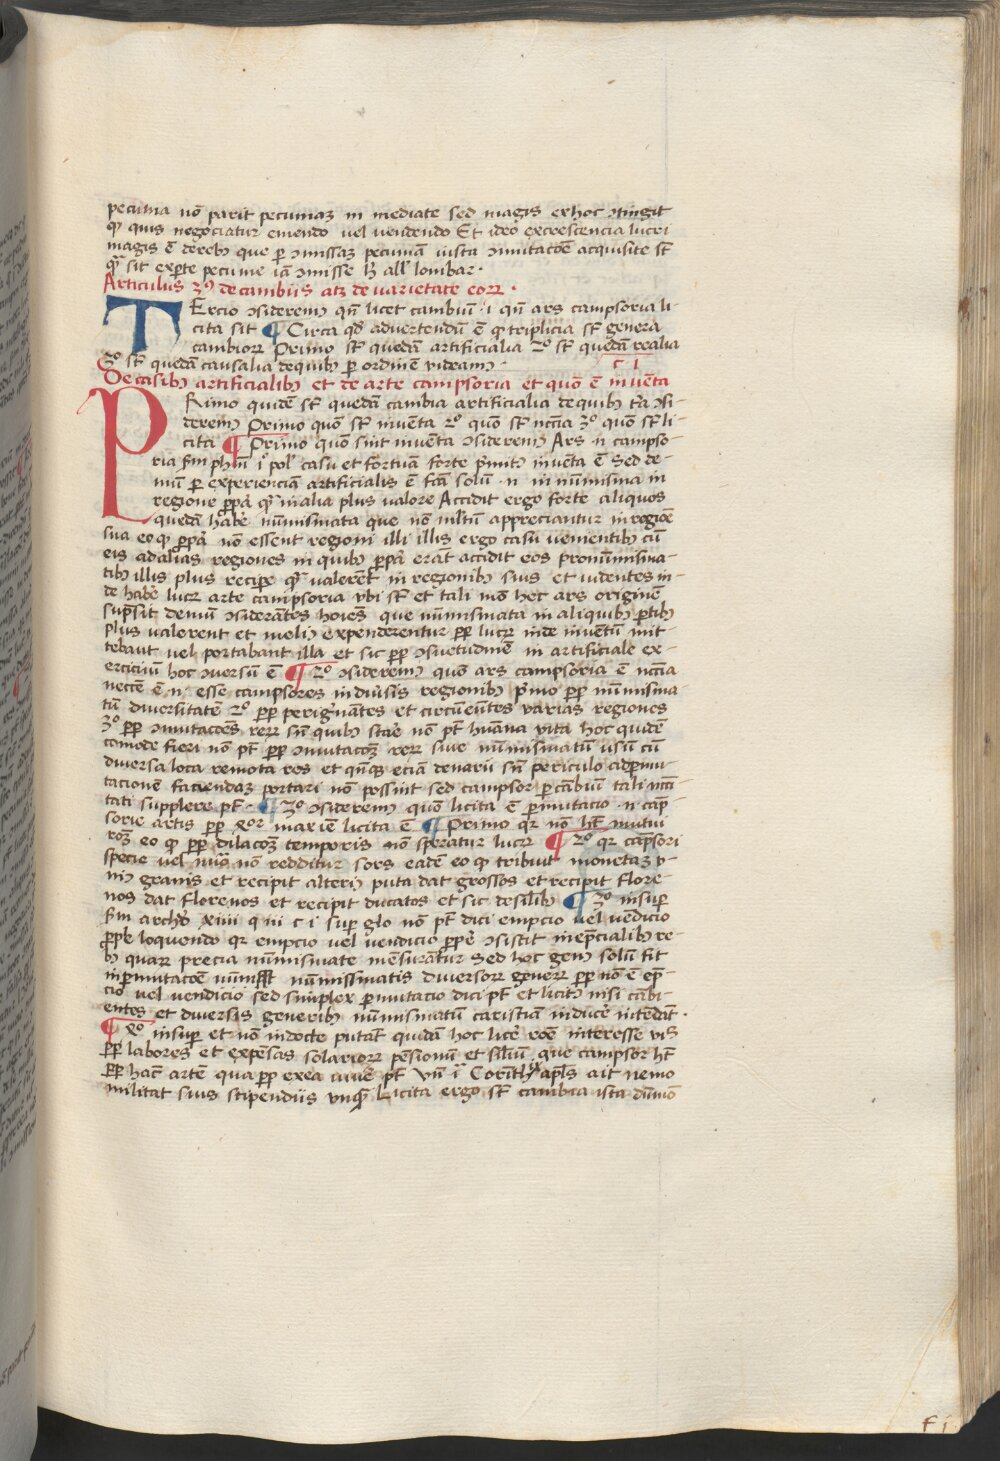 pecunia nō parit pecuniaꝫ in mediate sed magis ex hoc ↄtingit
ꝙ quis negociatur emendo vel vendendo Et ideo excrescencia lucri
magis ē de rebꝰ que ꝑ ↄmissaꝫ pecuniā iusta ↄmutacōe acquisite st̄
qͣ sit ex ꝑte pecunie iā ↄmisse
Articulus 3ꝰ de cambiis atꝫ de varietate eoꝝ
TErcio ↄsideremꝰ qn̄ licet cambiū · i · qn̄ ars campsoria li
cita sit ¶ Circa qd̄ advertendū ē ꝙ triplicia st̄ genera
cambioꝝ Primo st̄ quedā artificialia 2º st̄ quedā realia
3º st̄ quedā causalia de quibꝰ ꝑ ordinē videamꝰ · c 1
De casibꝰ artificialibꝰ et de arte campsoria et quō ē inventa
PRimo quidē st̄ quedā cambia artificialia de quibꝰ ↄsi-
deremꝰ Primo quō st̄ inventa 2º quō st̄ nc̄cia 3º quō st̄ li
cita ¶ Primo quō sint inventa ↄsideremꝰ Ars · n · campso-
ria casu et fortuna forte inventa ē Sed de-
mū ꝑ experienciam artificialis ē fc̄a solū · n · in nūmisma in
regione ꝓpͥa qͣ in alia plus valore Accidit ergo forte aliquos
quedā habe nūmismata que nō appreciantur in regiōe
sua eo ꝙ ꝓpͥa nō essent regioni illi illis ergo casu venientibꝰ cū
eis ad alias regiones in quibꝰ ꝓpͥa erāt accidit eos pro nūmisma-
tibꝰ illis plus recipe qͣ valerēt in regionibꝰ suis et videntes in-
de habe lucꝝ arte campsoria vbi st̄ et tali mō hec ars originē
supsit demū ↄsiderātes hoies que nūmismata in aliquibꝰ ꝑtibꝰ
plus valerent et meliꝰ expenderentur ꝓp lucꝝ inde inventū mit
tebant vel portabant illa et sic ꝓp ↄsuetudinē in artificiale ex-
erciciū hoc ↄversū ē ¶ 2º ↄsideremꝰ quō ars campsoria ē nc̄cia
necc̄e ē · n · esse campsores in diūsis regionibꝰ pͥmo ꝓp nūmisma
tū diversitatē 2º ꝓp perigͥnātes et circūeūtes varias regiones
3º ꝓp ↄmutacōes reꝝ sn̄ quibꝰ stare nō pt̄ hūana vita hoc quidē
comode fieri nō pt̄ ꝓp ↄmutacōꝫ reꝝ sive nūmismatū usū cū
diversa loca remota res et qn̄qꝫ eciā denarii sn̄ periculo
tacionē faciendaꝫ portari nō possint sed campsor ꝑ cābiū tali
tati supplere pt̄ · ¶ 3º ↄsideremꝰ quō licita ē ꝑmutacio · n · cāp-
sorie artis ꝓp licita ē ¶ Primo qꝛ nō ht̄ mutui
eo ꝙ ꝓp dilacōꝫ temporis nō speratur lucꝝ ¶ 2º qꝛ cāpsori
specie vel nūo nō redditur sors eadē eo ꝙ tribuit monetaꝫ v-
niꝰ granis et recipit alteriꝰ puta dat grossos et recipit flore-
nos dat florenos et recipit ducatos et sic de silibꝰ ¶ 3º insup
nō pt̄ dici empcio vel vēdicio
ꝓpͥe loquendo qꝛ empcio vel vendicio ꝓpͥe ↄsistit in re-
bꝰ quaꝝ precia nūmismate mēsurātur Sed hoc genꝰ solū fit
in ꝑmutacōe nūmismatis diversoꝝ geneꝝ nō ē ep-
cio vel vendicio sed simplex ꝑmutacio dici pt̄ et licita nisi cābi-
entes et diversis generibꝰ nūmismatū caristiā inducē intēdāt ·
¶ insup et nō indocte putāt quidā hoc licē interesse
ꝓp labores et expēsas salarioꝝ pēsionū et siliū que campsor ht̄
ꝓp hāc artē ex ea vive pt̄ Vn̄ Corīth apl̄s ait nemo
militat suis stipendiis vnqͣ Licita ergo st̄ cambia ista
f i